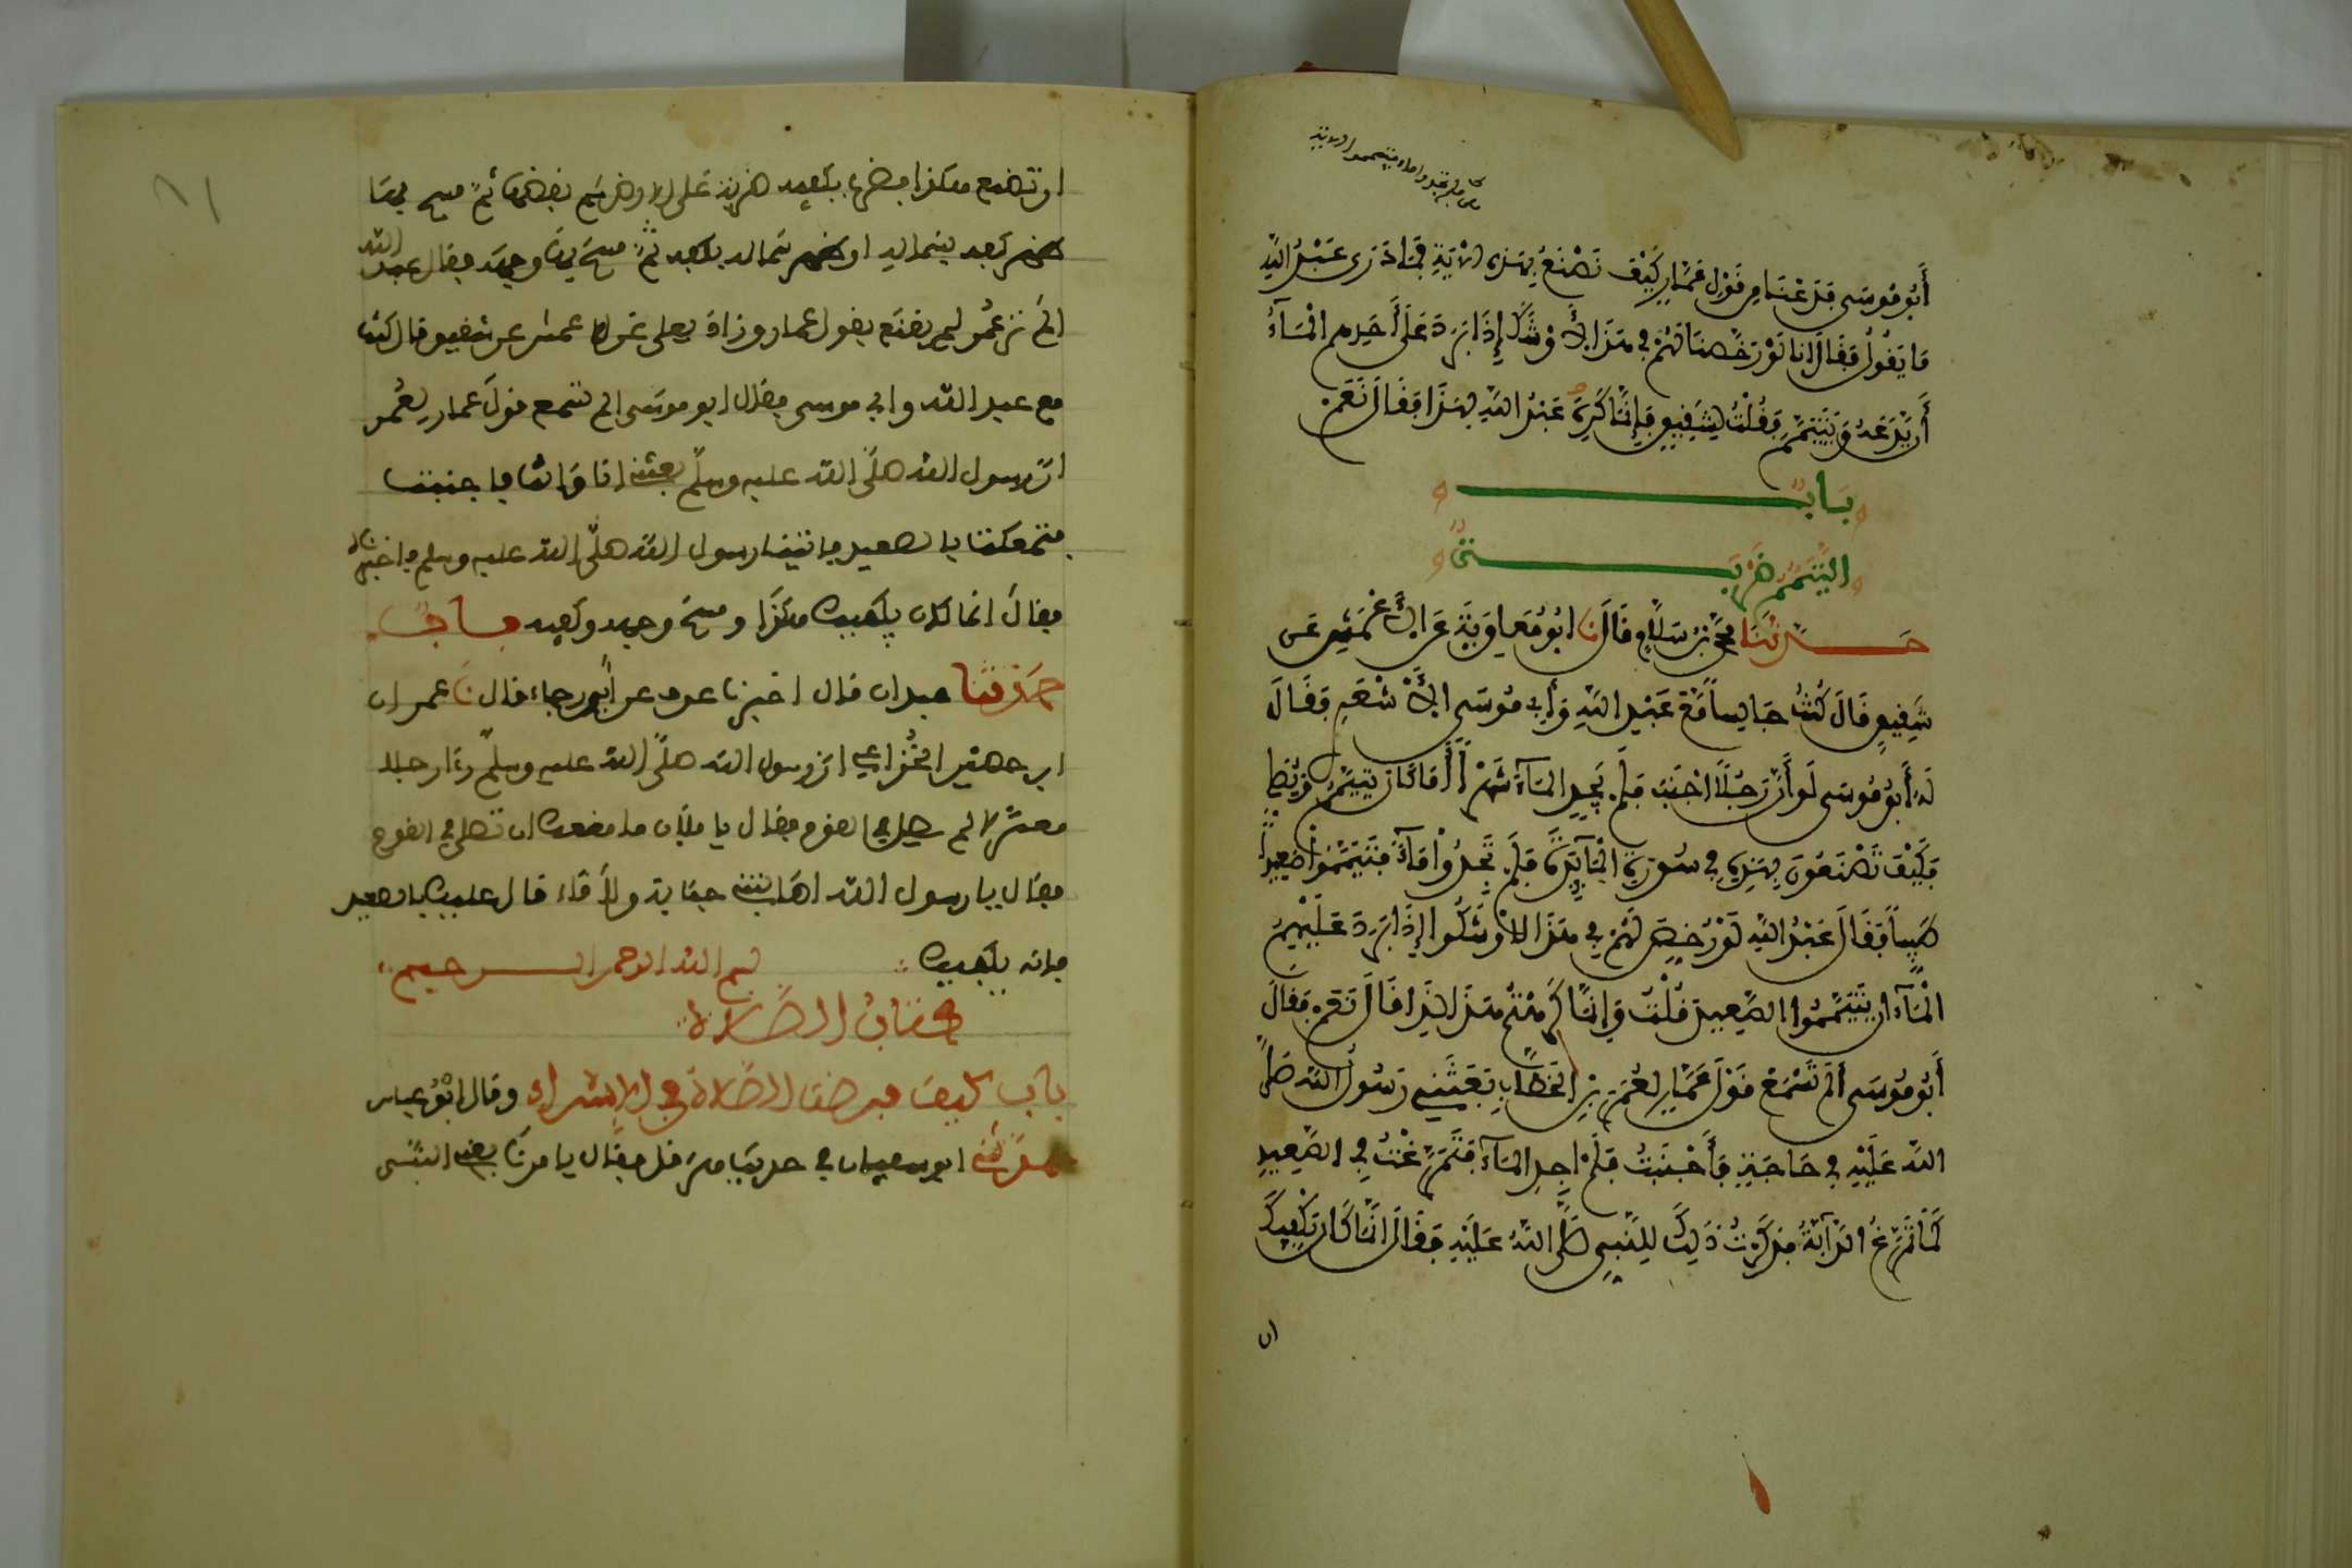 أَبُو مُوسَى فَدَعْنَا مِن قَوْلِ عَمَّارٍ كَيْفَ تَصْنَعُ بِهَذِهِ الآيَةِ فَمَا دَرَى عَبْدُ اللَّهِ
مَا يَقُولُ فَقَالَ إنا لَوْ رَخَّصْنَا لَهُمْ فِي هَذَا لأَوْشَكَ إِذَا بَرَدَ عَلَى أَحَدِهِمِ الْمَاءُ
أَن يَدَعَهُ وَيَتَيَمَّمَ فَقُلْتُ لِشَقِيقٍ فَإِنَّمَا كَرِهَ عَبْدُ اللَّهِ لِهَذَا فَقَالَ نَعَمْ
بَابٌ
التَّيَمُّمُ ضَرْبَةٌ
حَدَّثَنَا مُحَمَّدُ بْنُ سَلاَمٍ قَالَ نا أَبُو مُعَاوِيَةَ عَنِ الأَعْمَشِ عَن
شَقِيقٍ قَالَ كُنْتُ جَالِساً مَعَ عَبْدِ اللَّهِ وَأَبِي مُوسَى الأَشْعَرِي فَقَالَ
لَهُ أَبُو مُوسَى لَو أَنَّ رَجُلًا أَجْنَبَ فَلَمْ يَجِدِ الْمَاءَ شَهْراً أَمَا كَانَ يَتَيَمَّمُ وَيُصَلِّي
فَكَيْفَ تَصْنَعُونَ بِهَذِهِ فِي سُورَةِ الْمَائِدَةِ فَلَمْ تَجِدُوا مَاءً فَتَيَمَّمُوا صَعِيداً
طَيِّباً فَقَالَ عَبْدُ اللَّهِ لَوْ رُخِّصَ لَهُمْ فِي هَذَا لأَوْشَكُوا إِذَا بَرَدَ عَلَيْهِمُ
الْمَاءُ أن يَتَيَمَّمُوا الصَّعِيدَ قُلْتُ وَإِنَّمَا كَرِهْتُمْ هَذَا لِذَا قَالَ نَعَمْ فَقَالَ
أَبُو مُوسَى أَلَمْ تَسْمَعْ قَوْلَ عَمَّارٍ لِعُمَرَ بْنِ الْخَطَّابِ بَعَثَنِي رَسُولُ اللَّهِ صَلَّى
اللَّهُ عَلَيْهِ فِي حَاجَةٍ فَأَجْنَبْتُ فَلَمْ أَجِدِ الْمَاءَ فَتَمَرَّغْتُ فِي الصَّعِيدِ
كَمَا تَمَرَّغُ الدَّابَّةُ فَذَكَرْتُ ذَلِكَ لِلنَّبِي صَلَّى اللَّهُ عَلَيْهِ فَقَالَ إِنَّمَا كَانَ يَكْفِيكَ
ان
ان تصنع هكذا فضرب بكفيه ضربة على الارض ثم نفضهما ثم مسح بهما
ظهر كفه بشماله او ظهر شماله بكفه ثم مسح بهما وجهه فقال عبد الله
الم تر عمر لم يقنع بقول عمار وزاد يعلى عن الاعمش عن شقيق قال كنت
مع عبد الله وابي موسى فقال ابو موسى الم تسمع قول عمار لعمر
ان رسول الله صلى الله عليه وسلم بعثني انا وانت فاجنبت
فتمعكت بالصعيد فاتينا رسول الله صلى الله عليه وسلم فاخبرناه
فقال انما كان يكفيك هكذا ومسح وجهه وكفيه باب
حدثنا عبدان قال اخبرنا عوف عن ابي رجاء قال نا عمران
ابن حصين الخزاعي ان رسول الله صلى الله عليه وسلم رءا رجلا
معتزلا لم يصل في القوم فقال يا فلان ما منعك ان تصلي في القوم
فقال يا رسول الله اصابتني جنابة ولا ماء قال عليك بالصعيد
فانه يكفيك بسم الله الرحمن الرحيم
كتاب الصلاة
باب كيف فرضت الصلاة في الاسراء وقال ابن عباس
حدثني ابو سفيان في حديث هرقل فقال يامرنا يعني النبي